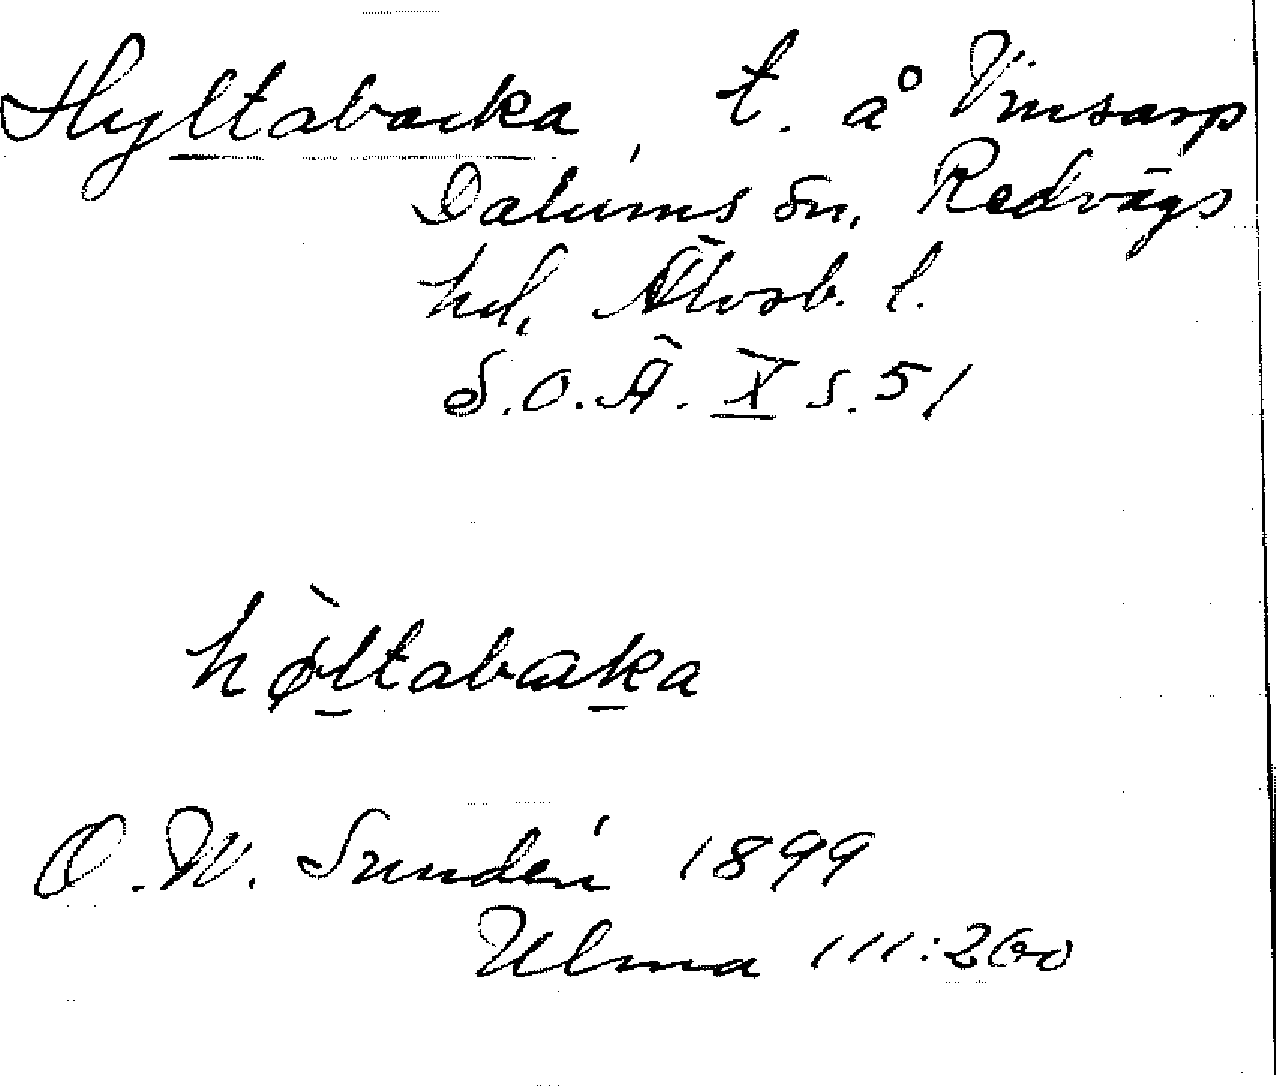 Hyltabacka, t. å Vinsarp
Dalums sn, Redvägs
hd, Älvsb. l.
S.O.Ä. X s. 51
hø̀ltabaka
O. W. Sundén 1899
Ulma 111:260